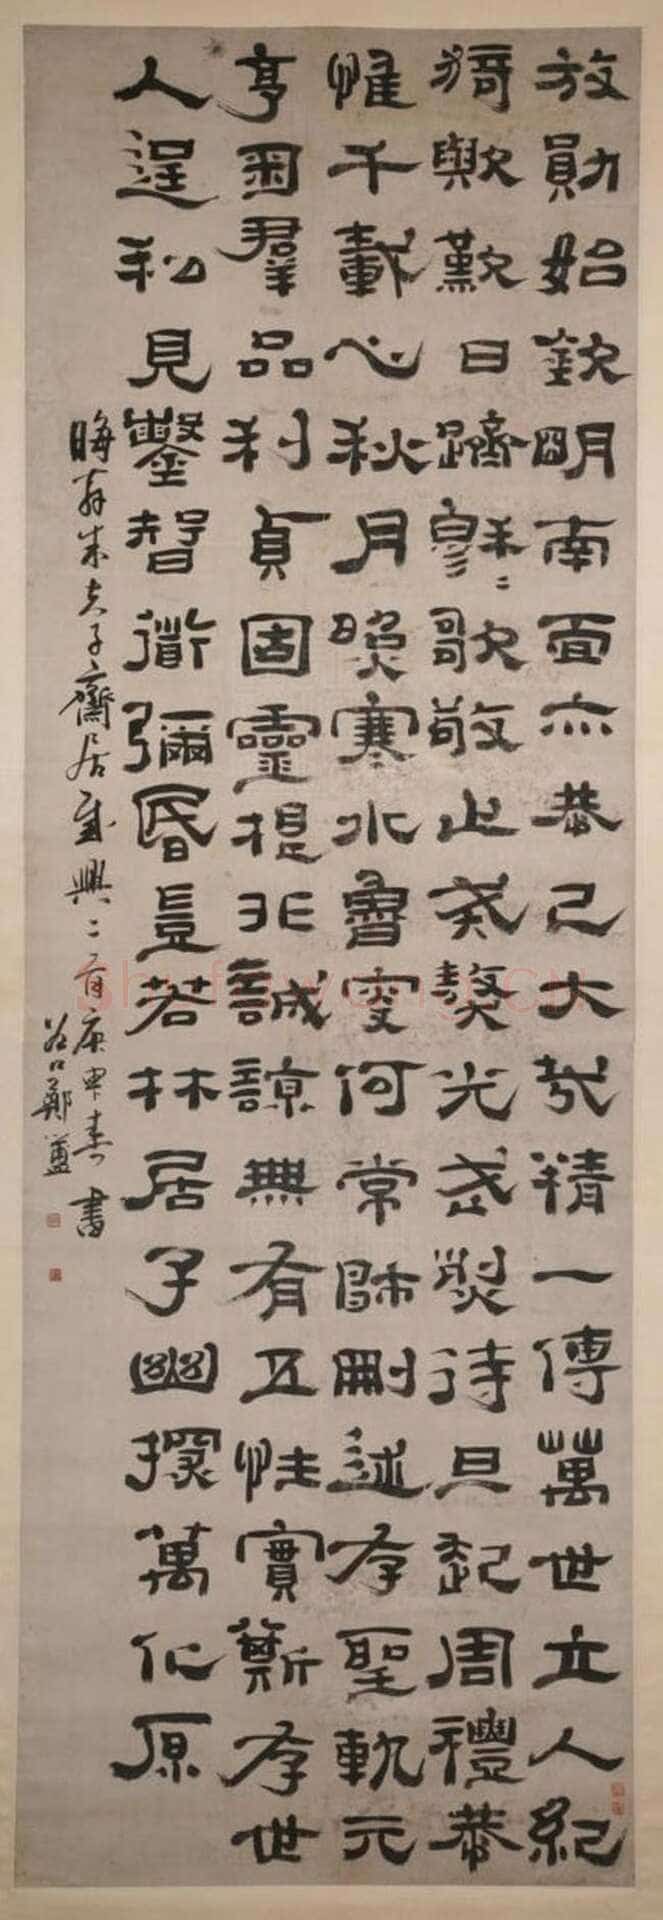 放勛始欽明南面亦恭己大哉精一傳萬世立人紀
猗歟歎日躋穆〻歌敬止戒獒光武烈待旦起周禮恭
惟千載心秋月照寒水魯叟何常師刪述存聖軌元
亨函羣品利貞固靈根非誠諒無有五性實斯存世
人逞私見鑿智道彌昏豈若林居子幽探萬化原
晦翁朱夫子齋居感興二首庚申春書
谷口鄭簠